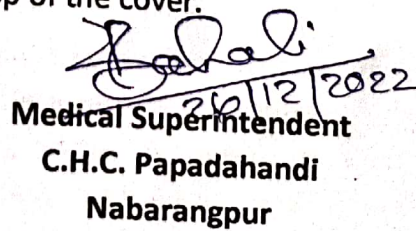 of the cover.
26/12/2022
Medical Superintendent
C.H.C. Papadahandi
Nabarangpur